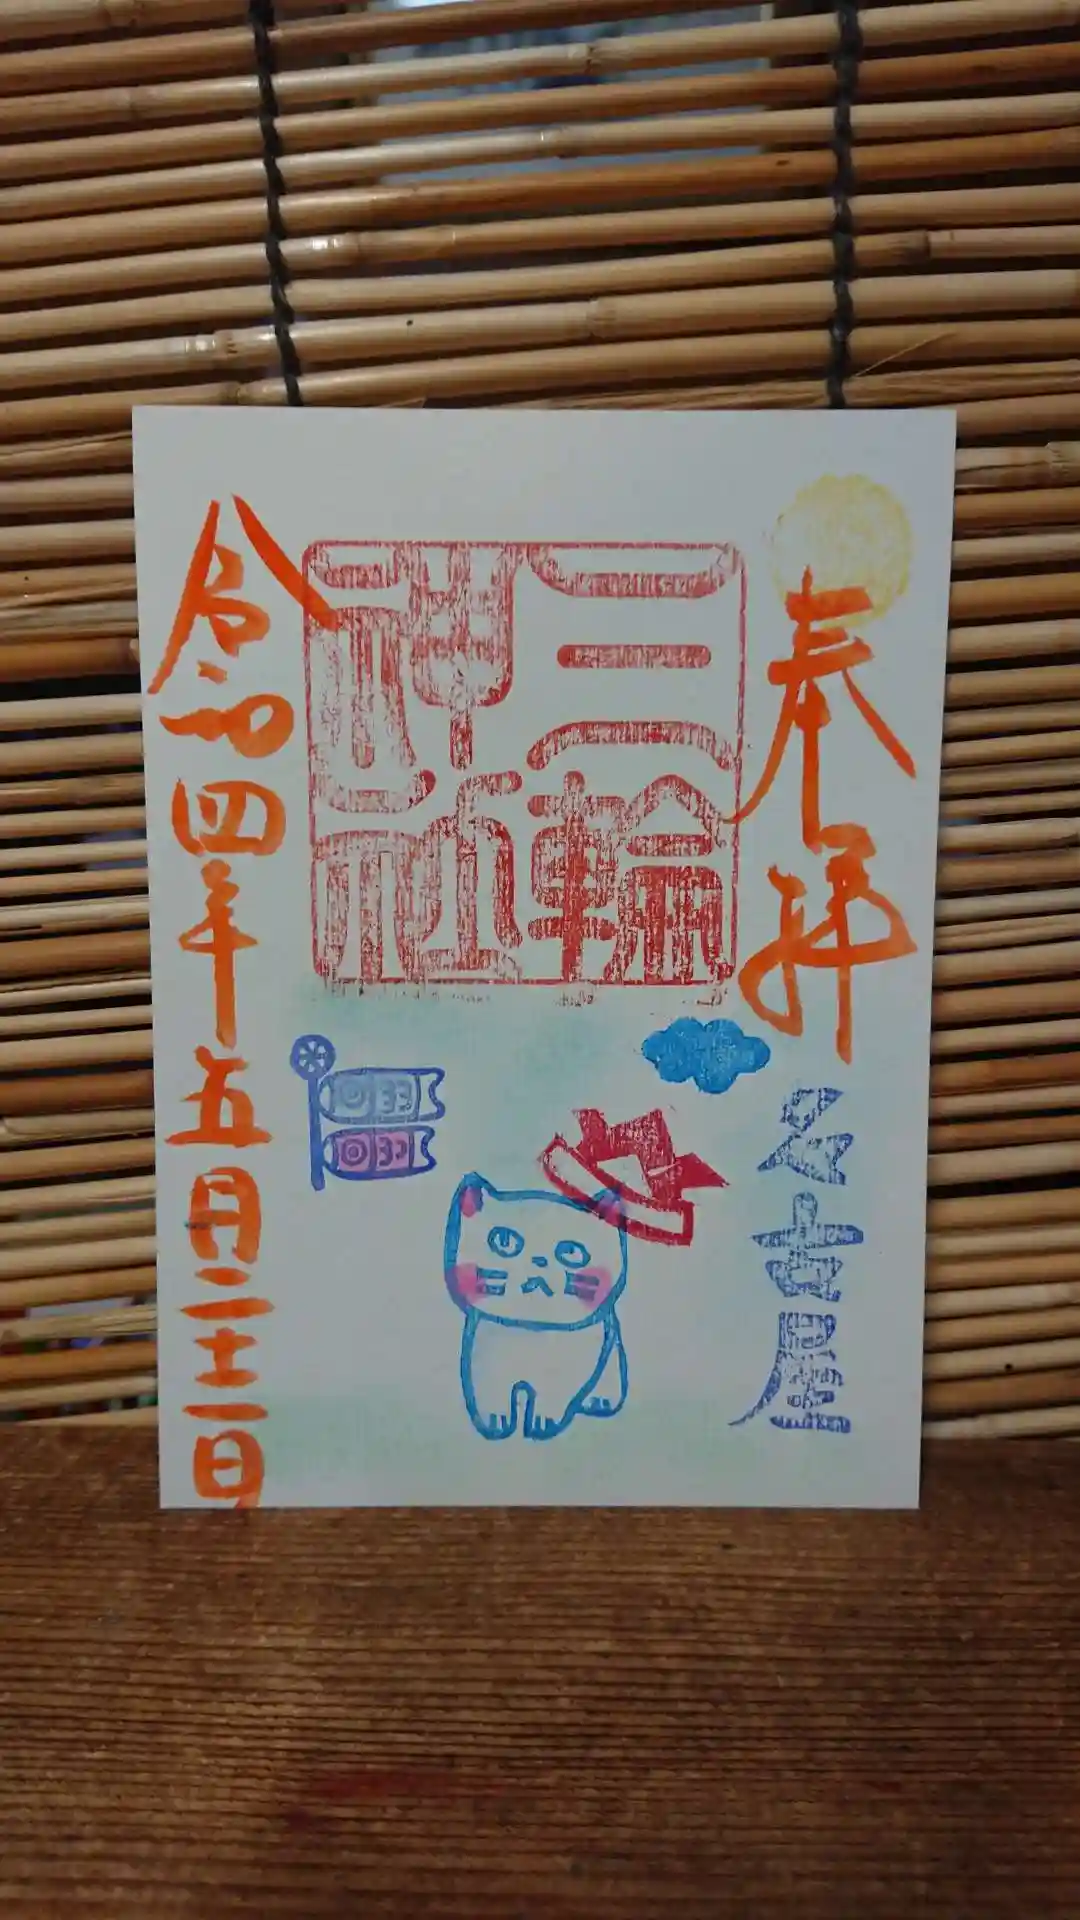 奉拝
名古屋
三輪
神社
令和四年五月二十二日